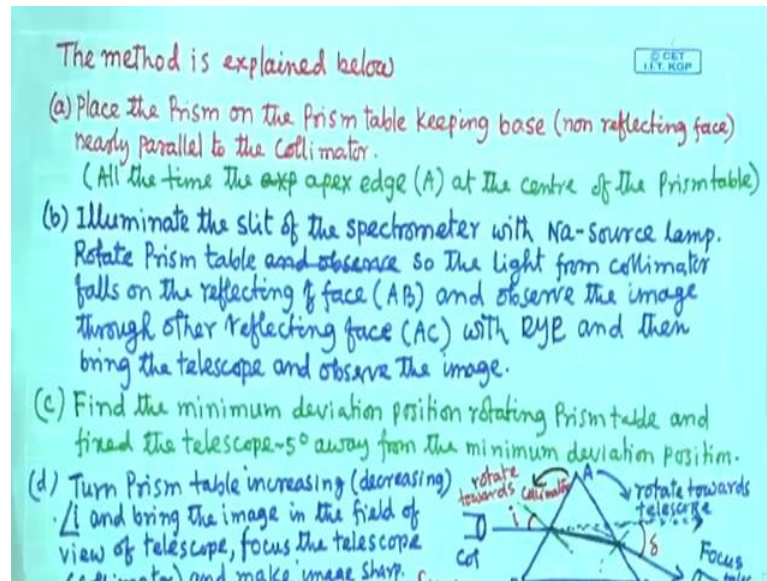 The method is explained below
© CET
I.I.T. KGP
(a) Place the Prism on the Prism table keeping base (non reflecting face)
nearly parallel to the Collimator.
(All the time the axp apex edge (A) at the centre of the Prism table)
(b) Illuminate the slit of the spectrometer with Na-source lamp.
Rotate Prism table and observe so the light from collimator
falls on the reflecting f face (AB) and observe the image
through other reflecting face (AC) with eye and then
bring the telescope and observe the image.
(c) Find the minimum deviation position rotating Prism table and
fixed the telescope ~5° away from the minimum deviation position.
(d) Turn Prism table increasing (decreasing)
∠i and bring the image in the field of
view of telescope, focus the telescope
(collimator) and make image sharp.
rotate
towards collimator
A
rotate towards
telescope
i
δ
Col
Focus